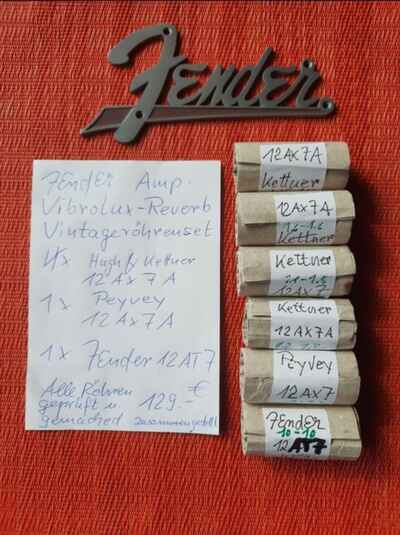 Fender
Fender Amp.
Vibrolux-Reverb
Vintageröhrenset
4x Hugh & Kettner
12AX7A
1x Peyvey
12AX7A
1x Fender 12AT7
Alle Röhren
geprüft u
gemached zusammengestellt
129.- €
12AX7A
Kettner
12AX7A
Kettner
Kettner
12AX7
Kettner
12AX7A
Peyvey
12AX7
Fender
10-10
12AT7